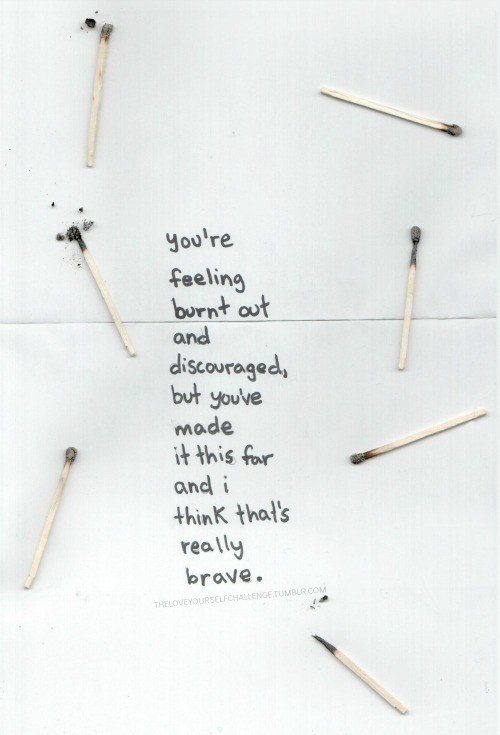 you're
feeling
burnt out
and
discouraged,
but you've
made
it this far
and i
think that's
really
brave.
THELOVEYOURSELFCHALLENGE.TUMBLR.COM